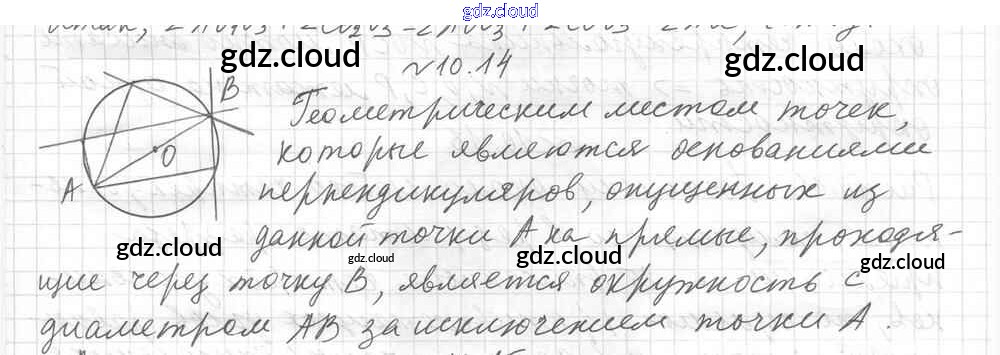 gdz.cloud
gdz.cloud gdz.cloud
№10.14
В
О
А
Геометрическим местом точек,
которые являются основаниями
перпендикуляров, опущенных из
данной точки А на прямые, проходя-
gdz.cloud gdz.cloud gdz.cloud gdz.cloud
щие через точку В, является окружность с
диаметром АВ за исключением точки А.